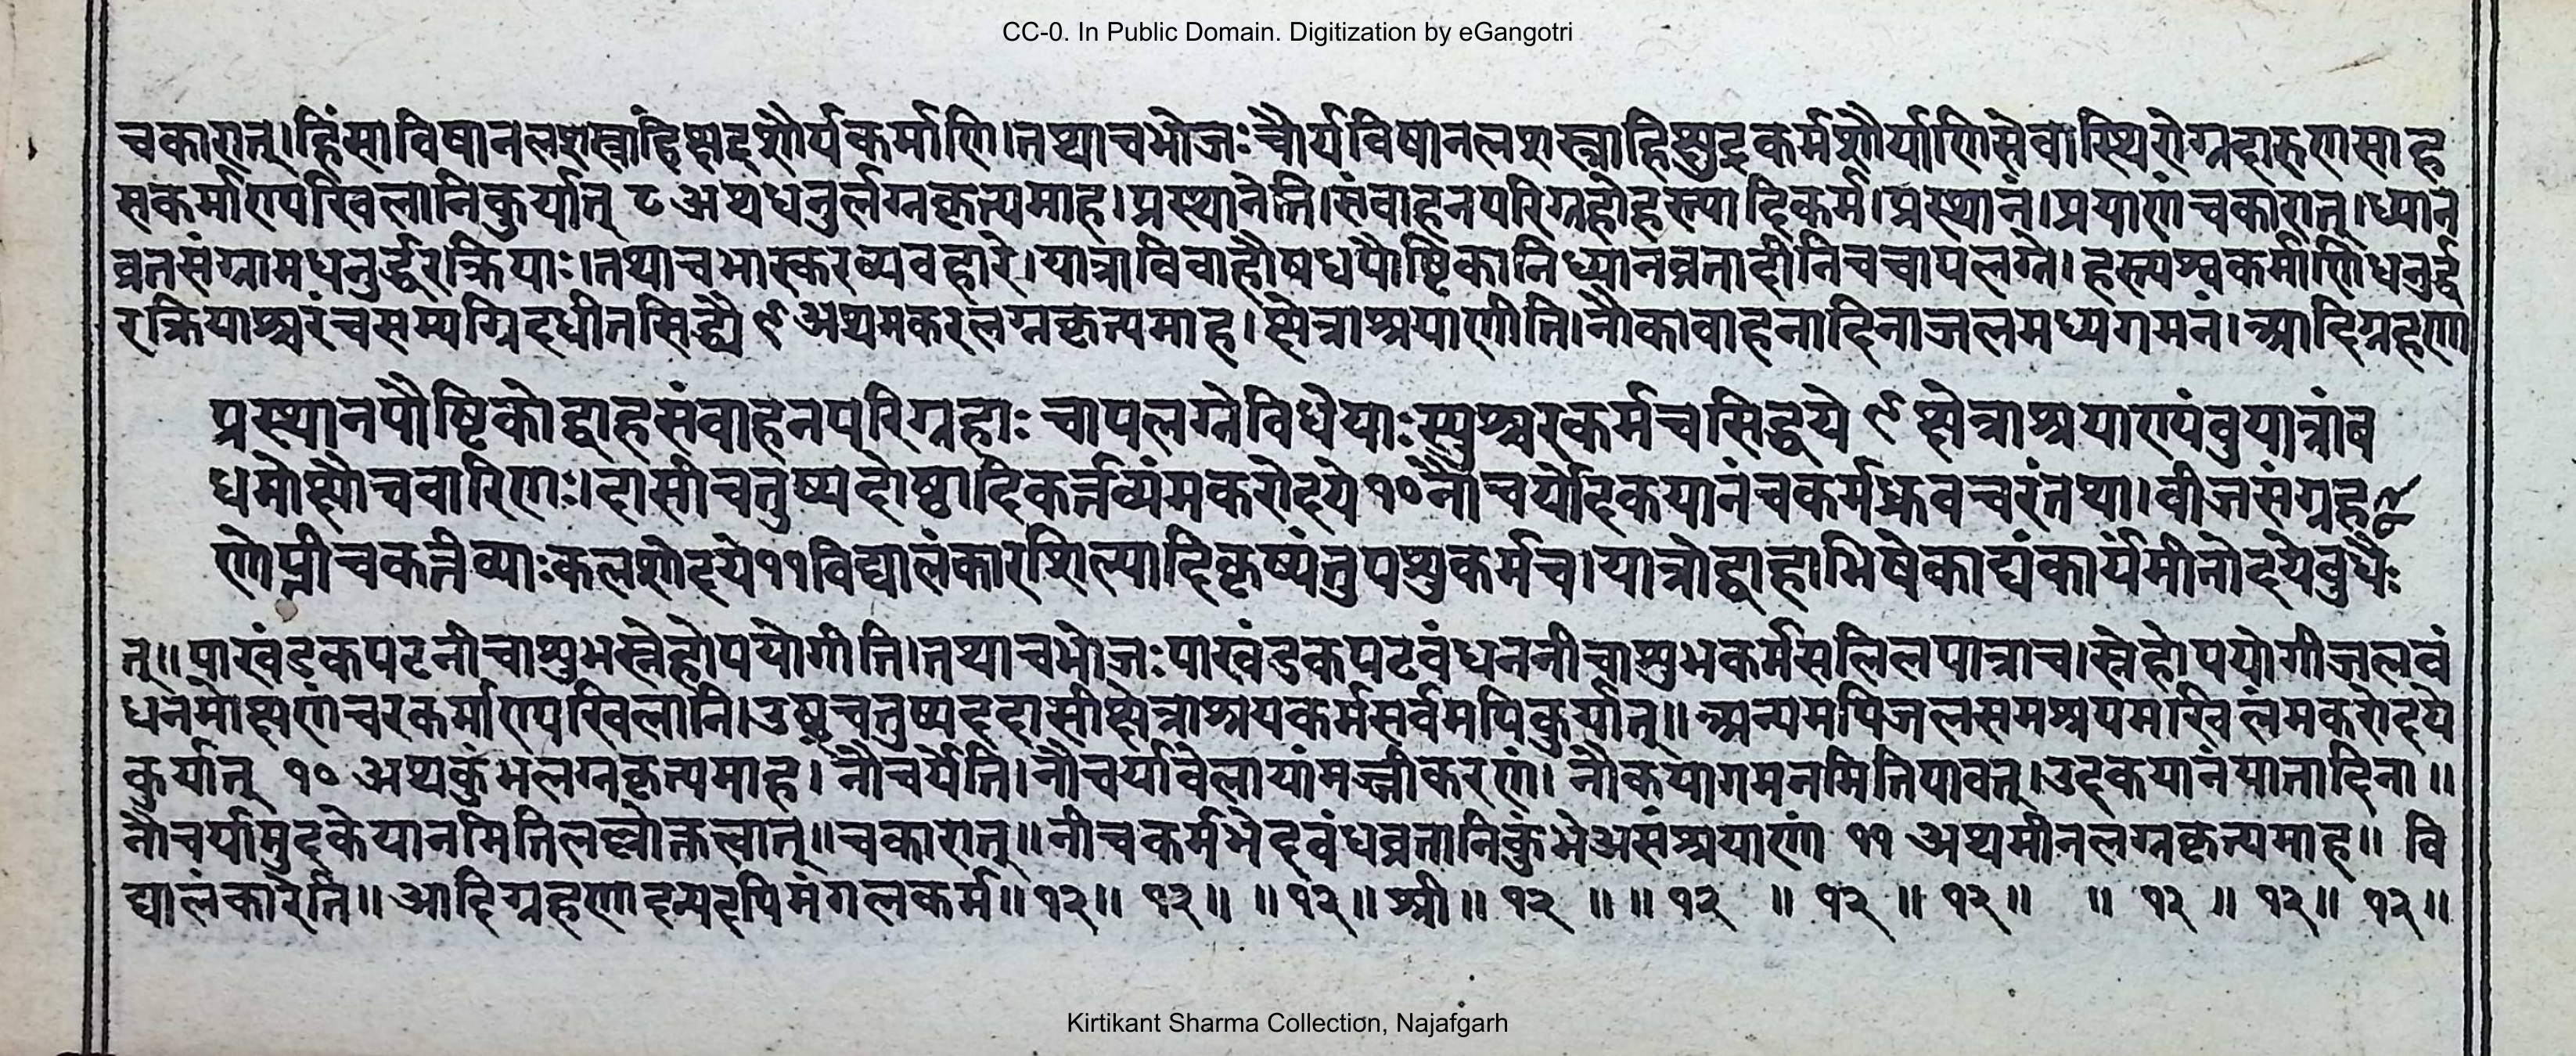 CC-0. In Public Domain. Digitization by eGangotri
चकारात्।हिंसाविषानलशस्त्राहिक्षुद्रशौर्यकर्माणि।तथाचभोजःचौर्यविषानलशस्त्राहिक्षुद्रकर्मशौर्याणिसेवास्थिरोग्रदारुणसाह
सकर्माण्यखिलानिकुर्यात् ८ अथधनुर्लग्नकृत्यमाह।प्रस्थानेति।संवाहनपरिग्रहोहस्त्यादिकर्म।प्रस्थानं।प्रयाणंचकारात्।ध्यान
व्रतसंग्रामधनुर्द्धरक्रियाः।तथाचभास्करव्यवहारे।यात्राविवाहौषधपौष्टिकानिध्यानव्रतादीनिचचापलग्ने।हस्त्यश्वकर्माणिधनुर्द्ध
रक्रियाश्चरंचसम्यग्विदधीतसिद्ध्यै ९ अथमकरलग्नकृत्यमाह।क्षेत्राश्रयाणीति।नौकावाहनादिनाजलमध्यगमनं।आदिग्रहणा
प्रस्थानपौष्टिकोद्वाहसंवाहनपरिग्रहाः चापलग्नेविधेयाःस्युश्चरकर्मचसिद्धये ९ क्षेत्राश्रयाण्यंबुयात्रांब
धमोक्षौचवारिणः।दासीचतुष्पदोष्ट्रादिकर्त्तव्यंमकरोदये १० नौचर्योदकयानंचकर्मध्रुवचरंतथा।बीजसंग्रह
णेप्नीचकर्त्तव्याःकलशोदये११विद्यालंकारशिल्पादिकृष्यंतुपशुकर्मच।यात्रोद्वाहाभिषेकाद्यंकार्यंमीनोदयेबुधैः
त्॥पाखंडकपटनीचाशुभस्नेहोपयोगीति।तथाचभोजःपाखंडकपटबंधननीचाशुभकर्मसलिलपात्राच।स्नेहोपयोगीजलबं
धनमोक्षणंचरकर्माण्यखिलानि।उष्ट्रचतुष्पददासीक्षेत्राश्रयकर्मसर्वमपिकुर्यात्॥अन्यमपिजलसमश्रयमखिलंमकरोदये
कुर्यात् १० अथकुंभलग्नकृत्यमाह। नौचर्येति।नौचर्यावेलायांमज्जीकरणं।नौकयागमनमितियावत्।उदकयानंयानादिना॥
नौचर्यामुदकेयानमितिलल्लोक्तत्वात्॥चकारात्॥नीचकर्मभेदबंधव्रतानिकुंभेअसंश्रयाणां ११ अथमीनलग्नकृत्यमाह॥ वि
द्यालंकारेति॥आदिग्रहणादन्यदपिमंगलकर्म॥१२॥ १२॥ ॥१२॥श्री॥१२ ॥॥१२ ॥ १२ ॥ १२॥ ॥ १२ ॥ १२॥ १२॥
Kirtikant Sharma Collection, Najafgarh